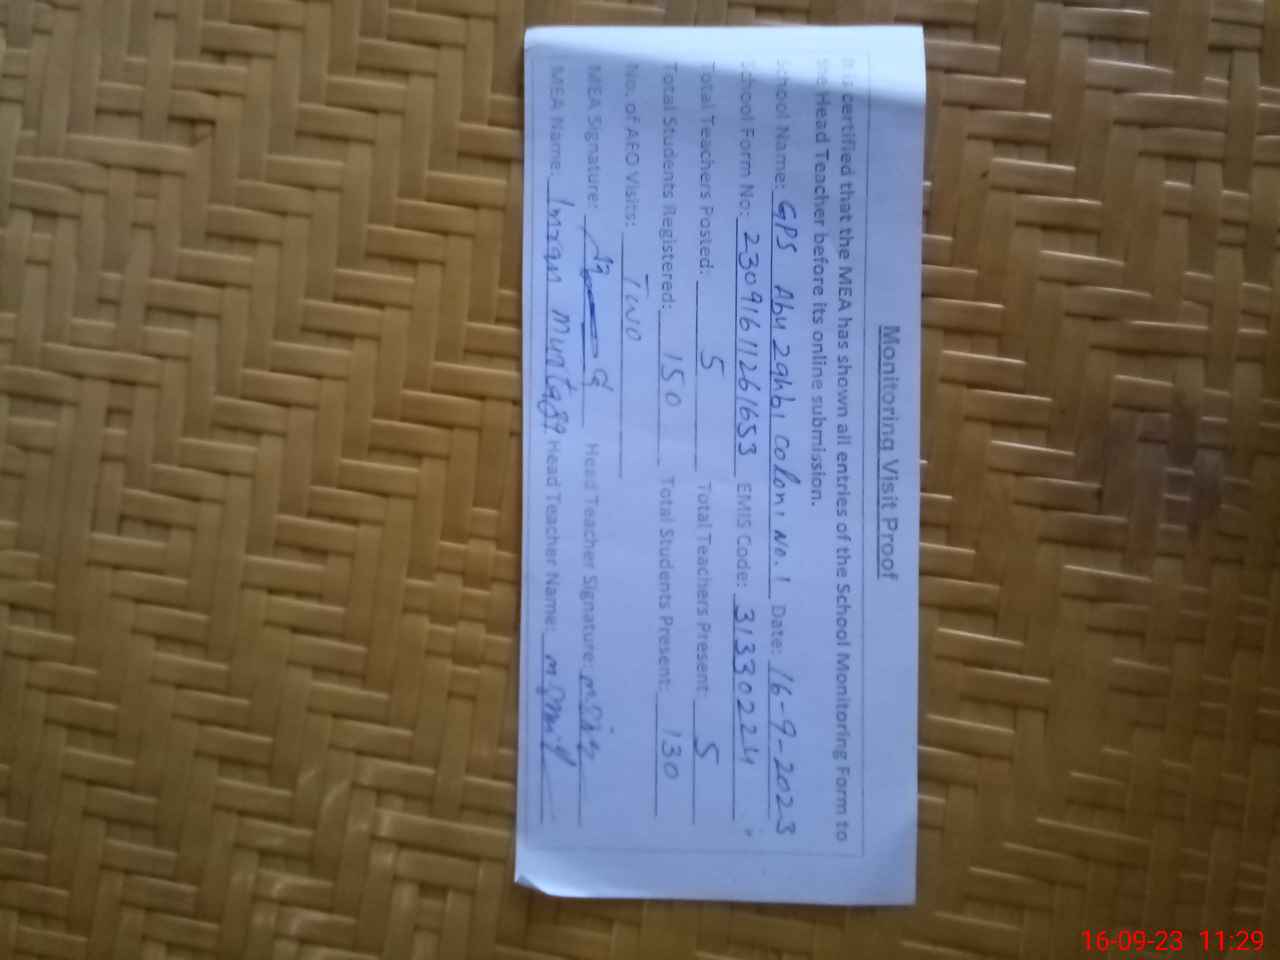 Monitoring Visit Proof
It is certified that the MEA has shown all entries of the School Monitoring Form to
the Head Teacher before its online submission.
School Name: GPS Abu Zahbi Coloni No. 1 Date: 16-9-2023
School Form No: 23091611261653 EMIS Code: 31330224
Total Teachers Posted: 5 Total Teachers Present: 5
Total Students Registered: 150 Total Students Present: 130
No. of AEO Visits: Two
MEA Signature: Head Teacher Signature:
MEA Name: Imran Head Teacher Name:
16-09-23 11:29